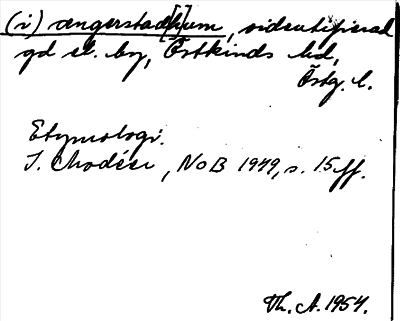 (i) ængerstad[h]um, oidentifierad
gd el. by, Östkinds hd,
Östg. l.
Etymologi.
I. Modéer, NoB 1949, s. 15 ff.
Th. A. 1954.